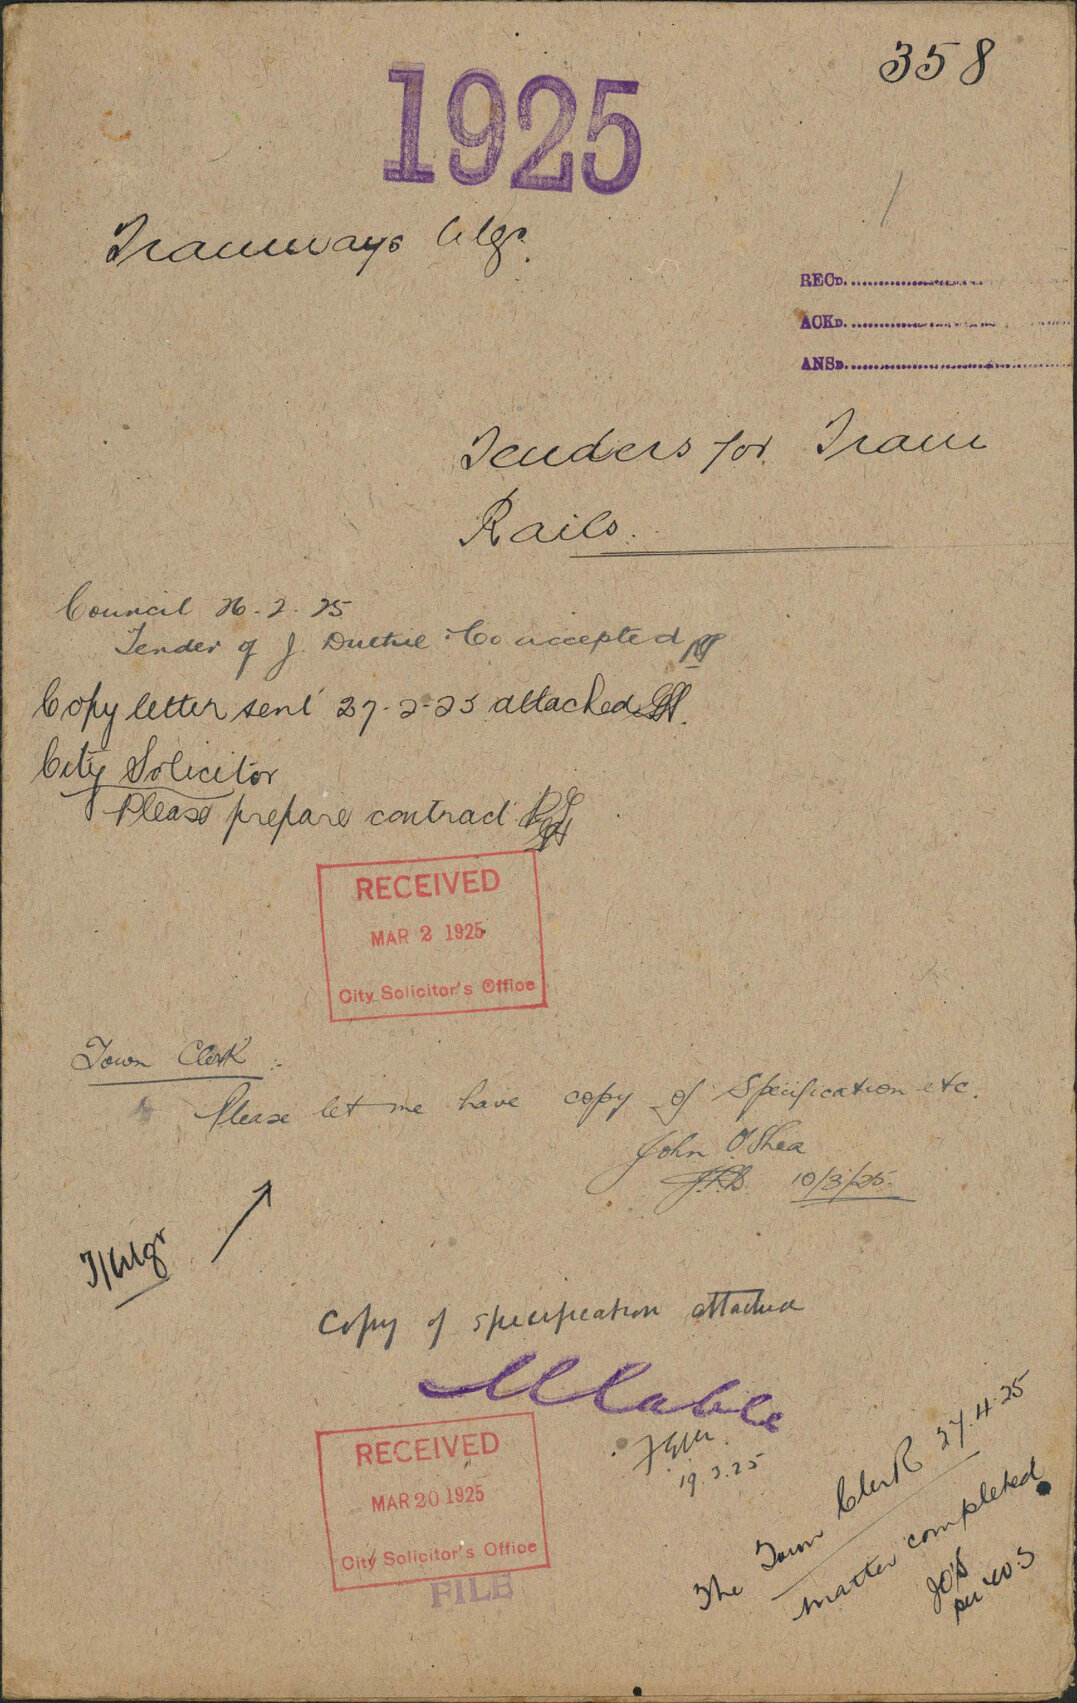 358
1925
Tramways Mgr.
RECD.
ACKD.
ANSD.
Tenders for Tram
Rails.
Council 26.2.25
Tender of J. Duthie & Co accepted
Copy letter sent 27-2-25 attached
City Solicitor
Please prepare contract
RECEIVED
MAR 2 1925
City Solicitor's Office
Town Clerk :-
Please let me have copy of Specification etc.
John O'Shea
10/3/25.
T/Mgr
Copy of specification attached
MCable
19.3.25
RECEIVED
MAR 20 1925
City Solicitor's Office
FILE
The Town Clerk 27.4.25
Matter completed
JO'S
per